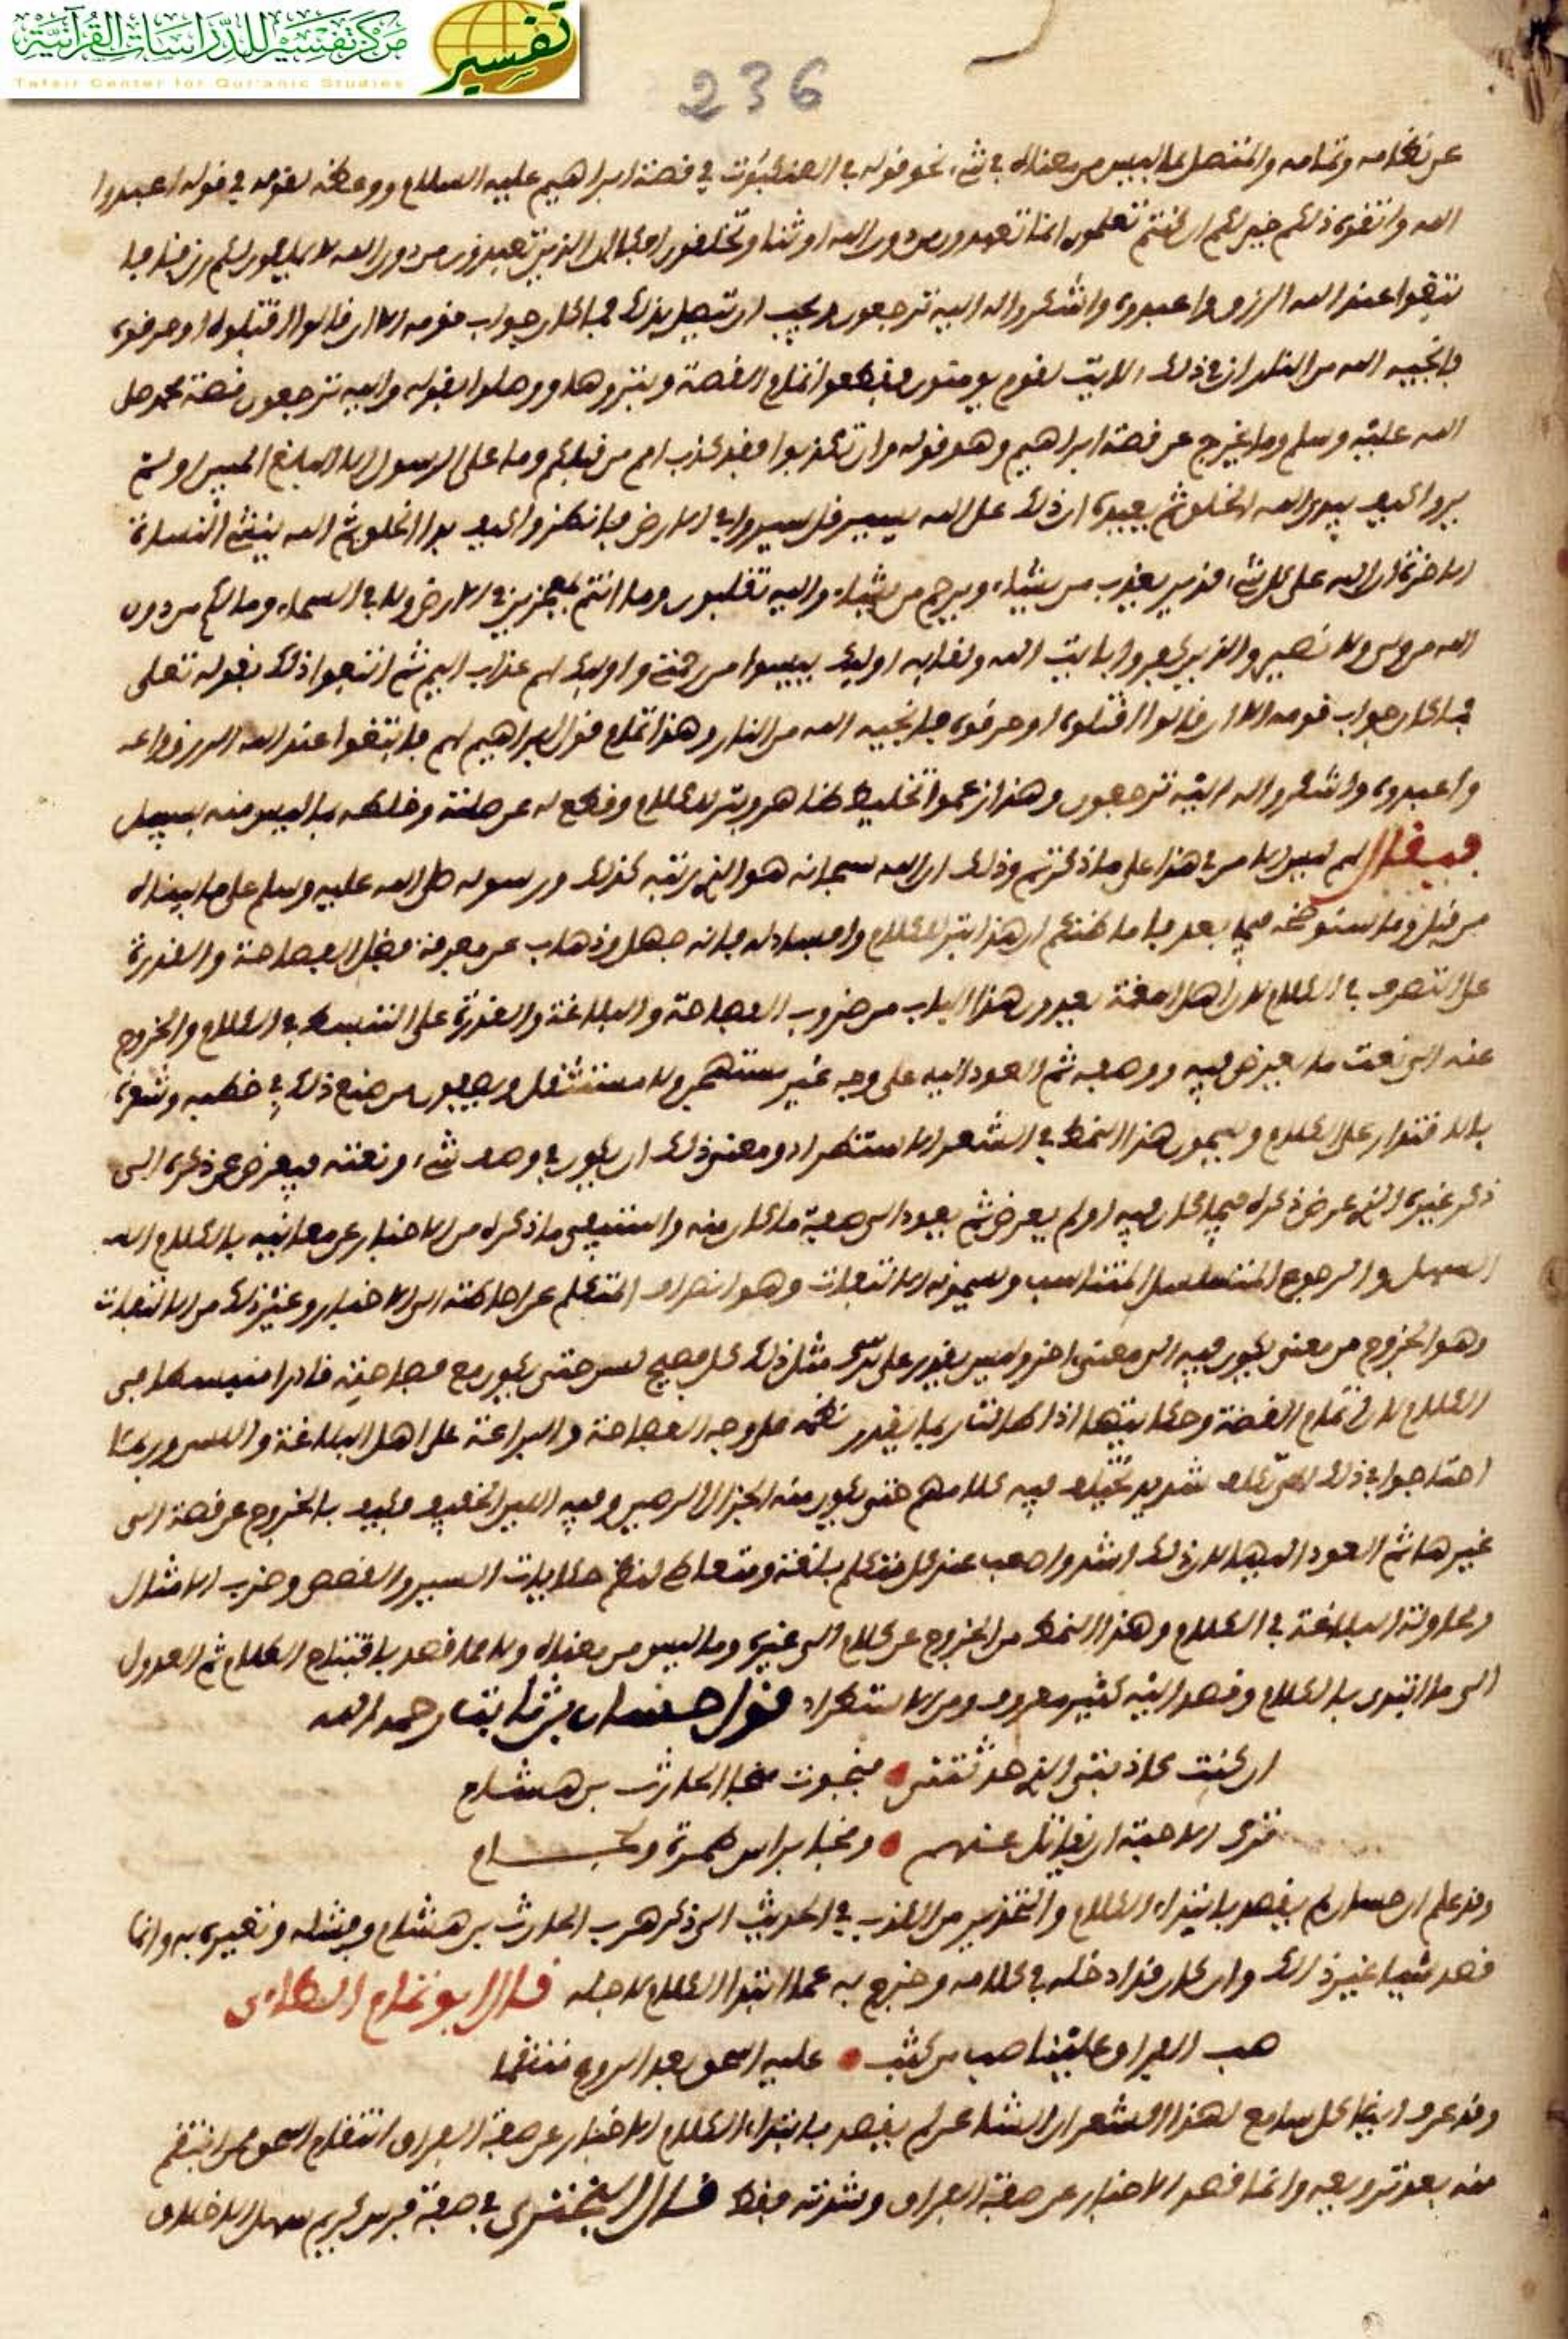 مركز تفسير للدراسات القرآنية
Tafsir Center for Qur'anic Studies
تفسير
236
عن نظامه وتمامه والمتصل بما ليس من معناه في شيء نحو قوله في العنكبوت في قصة ابراهيم عليه السلام ووعظه لقومه في قوله اعبدوا
الله واتقوه ذلكم خير لكم ان كنتم تعلمون انما تعبدون من دون الله اوثنا وتخلقون افكا ان الذين تعبدون من دون الله لا يملكون لكم رزقا فا
بتغوا عند الله الرزق واعبدوه واشكروا له اليه ترجعون ويجب ان يتصل بذلك فما كان جواب قومه الا ان قالوا اقتلوه او حرقوه
فانجيه الله من النار ان في ذلك لايت لقوم يومنون فقطعوا تمام القصة وبتروها ووصلوا بقوله واليه ترجعون قصة محمد صلى
الله عليه وسلم وما يخرج عن قصة ابراهيم وهو قوله وان تكذبوا فقد كذب امم من قبلكم وما على الرسول الا البلغ المبين اولم
يروا كيف يبدئ الله الخلق ثم يعيده ان ذلك على الله يسير قل سيروا في الارض فانظروا كيف بدا الخلق ثم الله ينشئ النشاة
الاخرة ان الله على كل شيء قدير يعذب من يشاء ويرحم من يشاء واليه تقلبون وما انتم بمعجزين في الارض ولا في السماء وما لكم من دون
الله من ولي ولا نصير والذين كفروا بايت الله ولقايه اوليك ييسوا من رحمتي واوليك لهم عذاب اليم ثم اتبعوا ذلك بقوله تعلى
فما كان جواب قومه الا ان قالوا اقتلوه او حرقوه فانجيه الله من النار وهذا تمام قول ابراهيم لهم فابتغوا عند الله الرزق
واعبدوه واشكروا له اليه ترجعون وهذا زعموا تخليط ظاهر وبتر للكلام وقطع له عن صلته وخلطه بما ليس منه بسبيل
فيقال لهم ليس الامر في هذا على ما ذكرتم وذلك ان الله سبحانه هو الذي رتبه كذلك ورسوله صلى الله عليه وسلم على ما بيناه
من قبل وما سنوضحه فيما بعد فاما ظنكم ان هذا بتر للكلام وافساد له فانه جهل وذهاب عن معرفة فضل الفصاحة والقدرة
على التصرف في الكلام لان اهل اللغة يعدون هذا الباب من ضروب الفصاحة والبلاغة والقدرة على التبسط في الكلام والخروج
عنه الى نعت ما يعرض فيه ووصفه ثم العود اليه على وجه غير مستهجن ولا مستثقل ويصفون من صنع ذلك في خطبه وشعره
بالاقتدار على الكلام ويسمون هذا النمط في الشعر الاستطراد ومعنى ذلك ان يكون في وصف شيء ونعته فيعرض عن ذكره الى
ذكر غيره الذي عرض ذكره فيما كان فيه او لم يعرض ثم يعود الى صفة ما كان منه واستيفى ما ذكره من الاخبار عن معانيه بالكلام
السهل والرجوع المتسلسل المتناسب ويسمونه الالتفات وهو انصراف المتكلم عن الى الاخبار وغير ذلك من الالتفات
وهو الخروج من معنى يكون فيه الى معنى اخر وليس يقدر على مثل ذلك كل فصيح لسن حتى يكون مع فصاحته قادرا منبسطا في
الكلام لان تمام القصة وحكايتها اذا طالت ربما يقدر نظمه على وجه الفصاحة والبراعة على اهل البلاغة واللسن وربما
احتاجوا في ذلك الى تكلف شديد يختلف فيه كلامهم حتى يكون منه الجزل الرصين وفيه اللين الخفيف فكيف بالخروج عن قصة الى
غيرها ثم العود اليها لان ذلك اشد واصعب عند كل متكلم بلغة ومتعاط لنظم حكايات السير والقصص وضرب الامثال
ومحاولة البلاغة في الكلام وهذا النمط من الخروج عن كلام الى غيره وما ليس من معناه ولا مما قصد بافتتاح الكلام ثم العدول
الى ما ابتدى بالكلام وقصد اليه كثير معروف ومن الاستطراد قول حسان بن ثابت رحمه الله
ان كنت كاذبتي الذي حدثتني • فنجوت منجا الحارث بن هشام
ترك الاحبة ان يقاتل عنهم • ونجا براس طمرة ولجام
وقد علم ان حسان لم يقصد بابتداء الكلام والتحذير من الكذب في الحديث الى ذكر هرب الحارث بن هشام وفشله وتعييره به وانما
قصد شيا غير ذلك وان كان قد ادخله في كلامه وخرج به عما ابتدا الكلام لاجله قال ابو تمام الطاءي
صب الفراق علينا صب من كثب • عليه اسحق بعد الروع منتقما
وقد عرف ايضا كل سامع لهذا الشعر ان الشاعر لم يقصد بابتداء الكلام الاخبار عن صفة الفراق انتقام اسحق ممن انتقم
منه بعد ترويعه وانما قصد الاخبار عن صفة الفراق وشدته فقط قال البحتري في صفة فرس كريم سهل الاخلاق